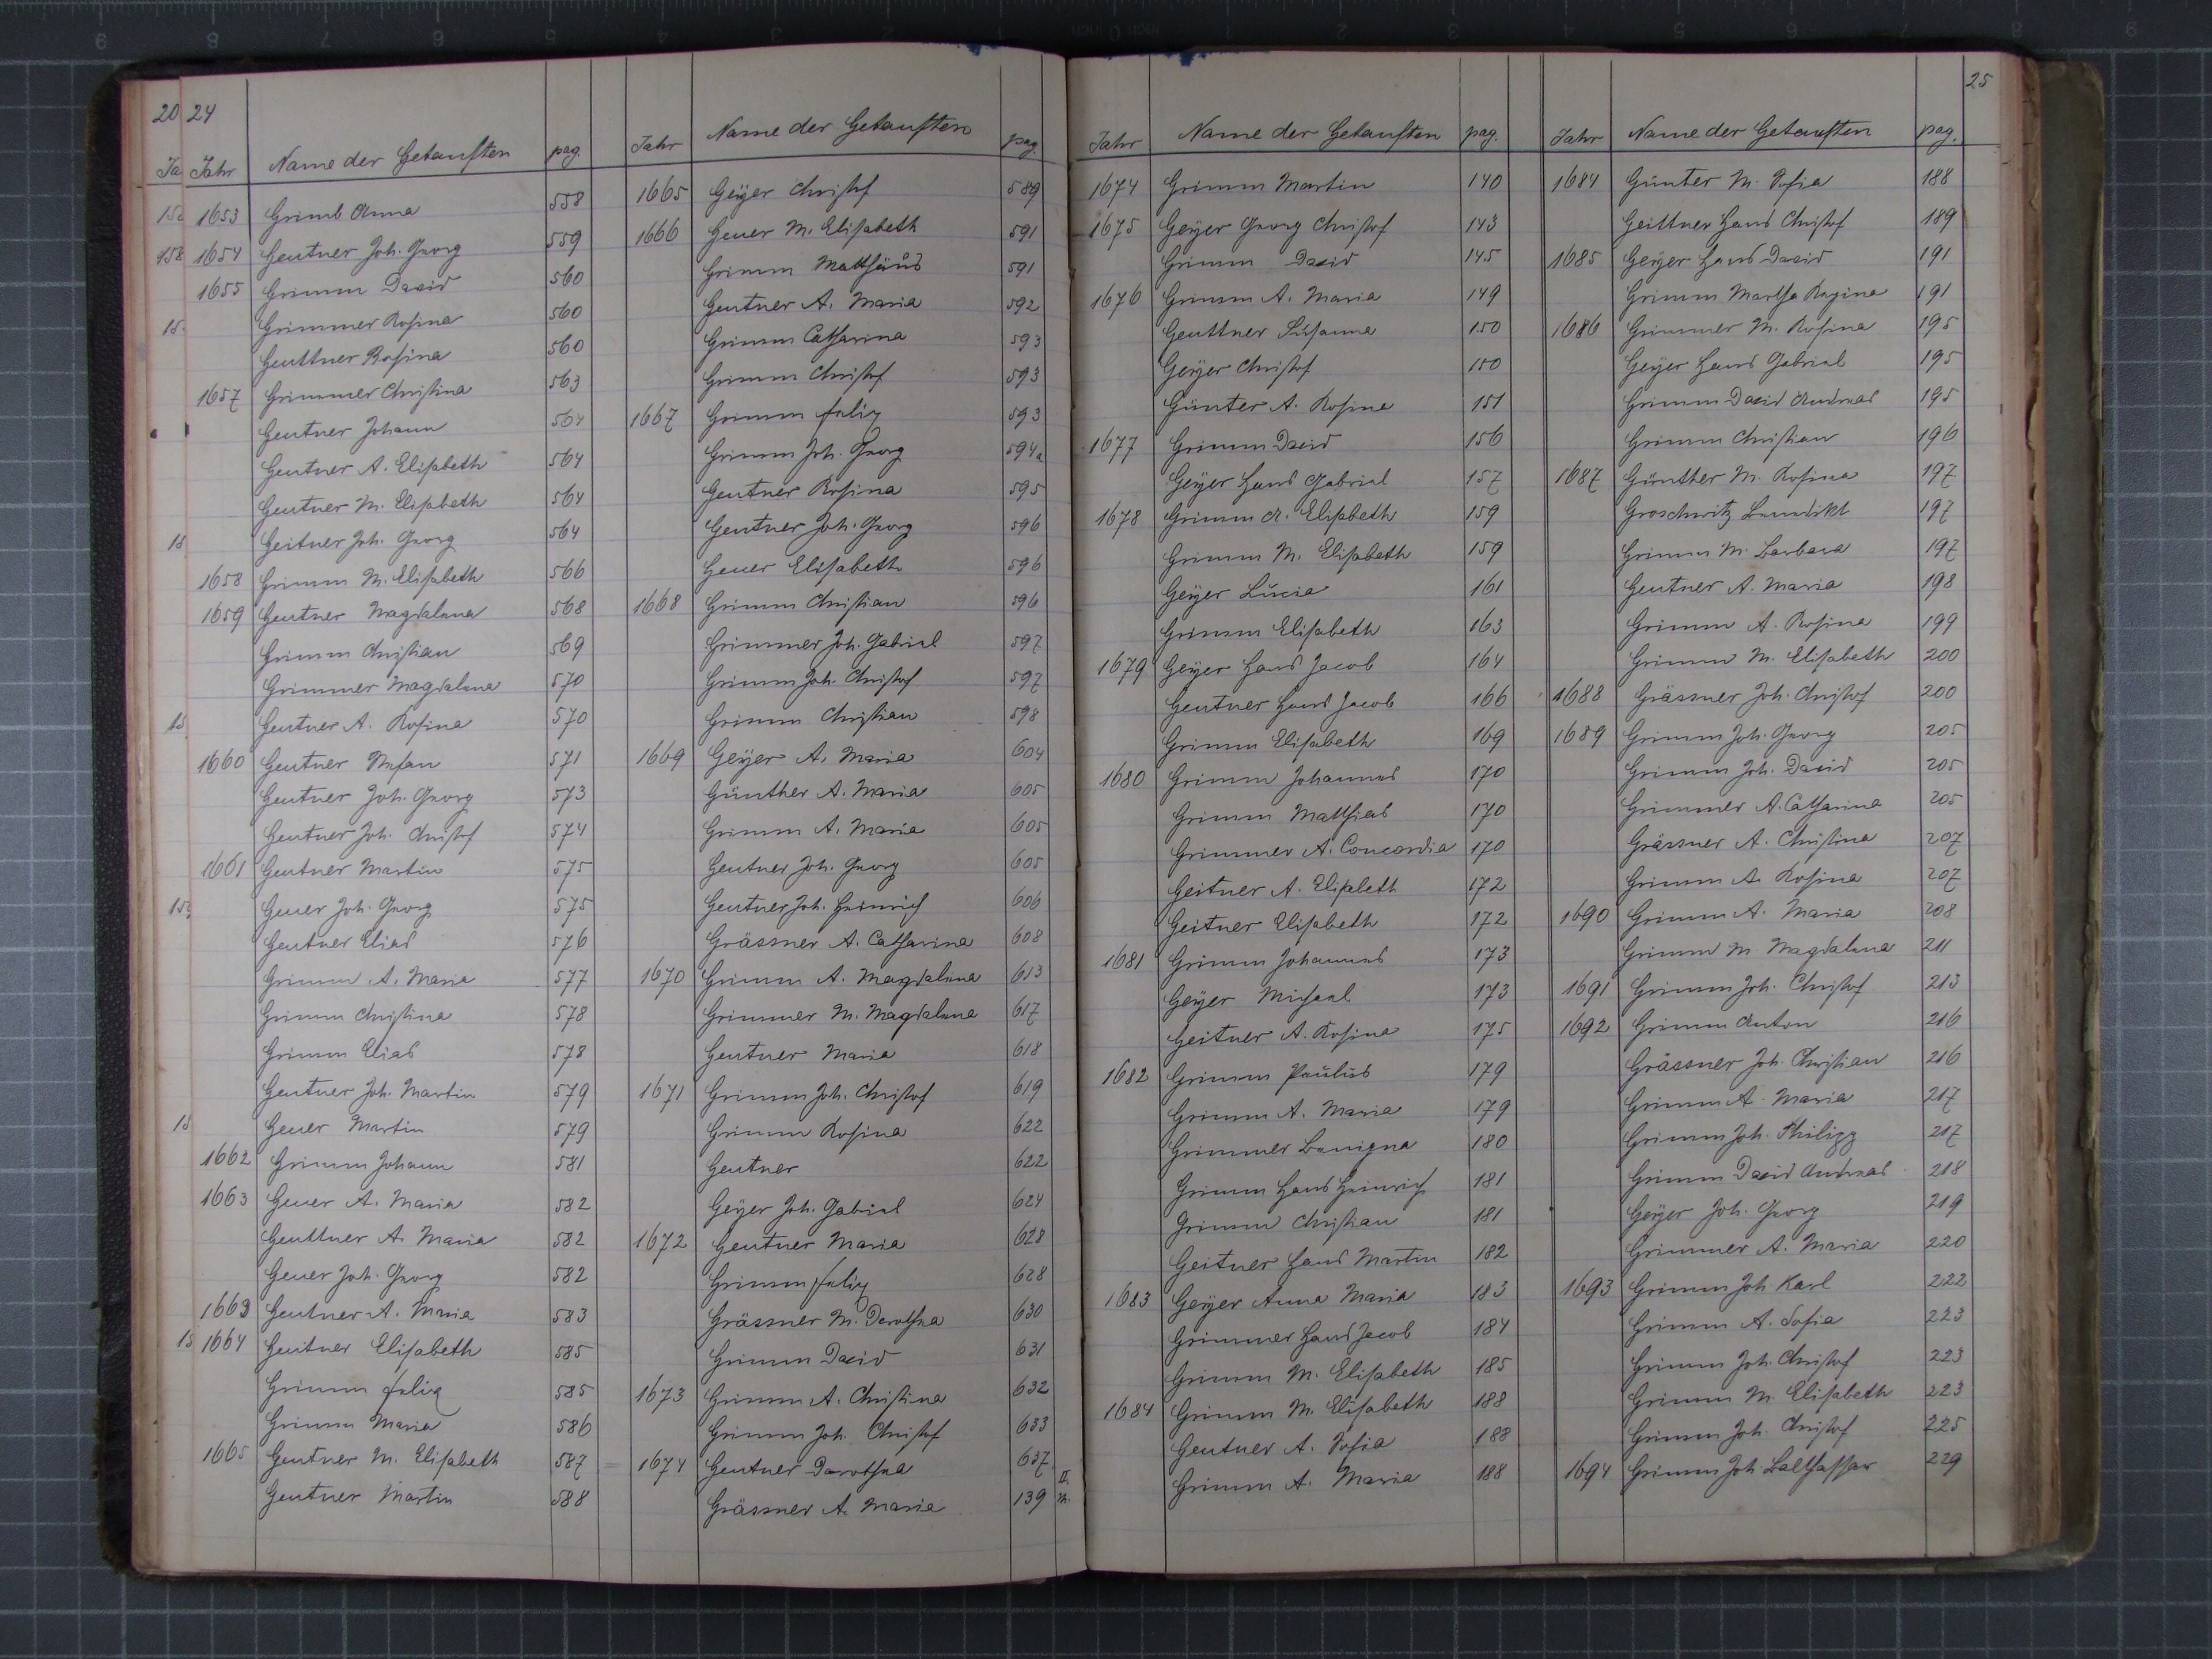 24
Jahr Name der Getauften pag.
1653 Grimb Anna 558
1654 Geutner Joh. Georg 559
1655 Grimm David 560
Grimmer Rosina 560
Geuttner Rosina 560
1657 Grimmer Christina 563
Geutner Johann 564
Geutner A. Elisabeth 564
Geutner M. Elisabeth 564
Geitner Joh. Georg 564
1658 Grimm M. Elisabeth 566
1659 Geutner Magdalena 568
Grimm Christian 569
Grimmer Magdalena 570
Geutner A. Rosina 570
1660 Geutner 571
Geutner Joh. Georg 573
Geutner Joh. Christof 574
1661 Geutner Martin 575
Geuer Joh. Georg 575
Geutner Elias 576
Grimm A. Maria 577
Grimm Christina 578
Grimm Elias 578
Geutner Joh. Martin 579
Geuer Martin 579
1662 Grimm Johann 581
1663 Geuer A. Maria 582
Geuttner A. Maria 582
Geuer Joh. Georg 582
1663 Geutner A. Maria 583
1664 Geitner Elisabeth 585
Grimm Felix 585
Grimm Maria 586
1665 Geutner M. Elisabeth 587
Geutner Martin 588
Jahr Name der Getauften pag.
1665 Geÿer Christof 589
1666 Geuer M. Elisabeth 591
Grimm Matthäus 591
Geutner A. Maria 592
Grimm Catharina 593
Grimm Christof 593
1667 Grimm Felix 593
Grimm Joh. Georg 594a
Geutner Rosina 595
Geutner Joh. Georg 596
Geuer Elisabeth 596
1668 Grimm Christian 596
Grimmer Joh. Gabriel 597
Grimm Joh. Christof 597
Grimm Christian 598
1669 Geÿer A. Maria 604
Günther A. Maria 605
Grimm A. Maria 605
Geutner Joh. Georg 605
Geutner Joh. Heinrich 606
Grässner A. Catharina 608
1670 Grimm A. Magdalena 613
Grimmer M. Magdalena 617
Geutner Maria 618
1671 Grimm Joh. Christof 619
Grimm Rosina 622
Geutner 622
Geÿer Joh. Gabriel 624
1672 Geutner Maria 628
Grimm Felix 628
Grässner M. Dorothea 630
Grimm David 631
1673 Grimm A. Christina 632
Grimm Joh. Christof 633
1674 Geutner Dorothea 637
Grässner A. Maria 139 II. M.
Jahr Name der Getauften pag.
1674 Grimm Martin 140
1675 Geÿer Georg Christof 143
Grimm David 145
1676 Grimm A. Maria 149
Geuttner Susanna 150
Geÿer Christof 150
Günter A. Rosina 151
1677 Grimm David 156
Geÿer Hans Gabriel 157
1678 Grimm A. Elisabeth 159
Grimm M. Elisabeth 159
Geÿer Lucia 161
Grimm Elisabeth 163
1679 Geÿer Hans Jacob 164
Geutner Hans Jacob 166
Grimm Elisabeth 169
1680 Grimm Johannes 170
Grimm Matthias 170
Grimmer A. Concordia 170
Geitner A. Elisabeth 172
Geitner Elisabeth 172
1681 Grimm Johannes 173
Geÿer Michael 173
Geitner A. Rosina 175
1682 Grimm Paulus 179
Grimm A. Maria 179
Grimmer Benigna 180
Grimm Hans Heinrich 181
Grimm Christian 181
Geitner Hans Martin 182
1683 Geÿer Anna Maria 183
Grimmer Hans Jacob 184
Grimm M. Elisabeth 185
1684 Grimm M. Elisabeth 188
Geutner A. Sofia 188
Grimm A. Maria 188
25
Jahr Name der Getauften pag.
1684 Günter M. Sofia 188
Geittner Hans Christof 189
1685 Geÿer Hans David 191
Grimm Martha Regina 191
1686 Grimmer M. Rosina 195
Geÿer Hans Gabriel 195
Grimm David Andreas 195
Grimm Christian 196
1687 Günther M. Rosina 197
Groschwitz Benedikt 197
Grimm M. Barbara 197
Geutner A. Maria 198
Grimm A. Rosina 199
Grimm M. Elisabeth 200
1688 Grässner Joh. Christof 200
1689 Grimm Joh. Georg 205
Grimm Joh. David 205
Grimmer A. Catharina 205
Grässner A. Christina 207
Grimm A. Rosina 207
1690 Grimm A. Maria 208
Grimm M. Magdalena 211
1691 Grimm Joh. Christof 213
1692 Grimm Anton 216
Grässner Joh. Christian 216
Grimm A. Maria 217
Grimm Joh. Philipp 217
Grimm David Andreas 218
Geÿer Joh. Georg 219
Grimmer A. Maria 220
1693 Grimm Joh. Karl 222
Grimm A. Sofia 223
Grimm Joh. Christof 223
Grimm M. Elisabeth 223
Grimm Joh. Christof 225
1694 Grimm Joh. Balthassar 229